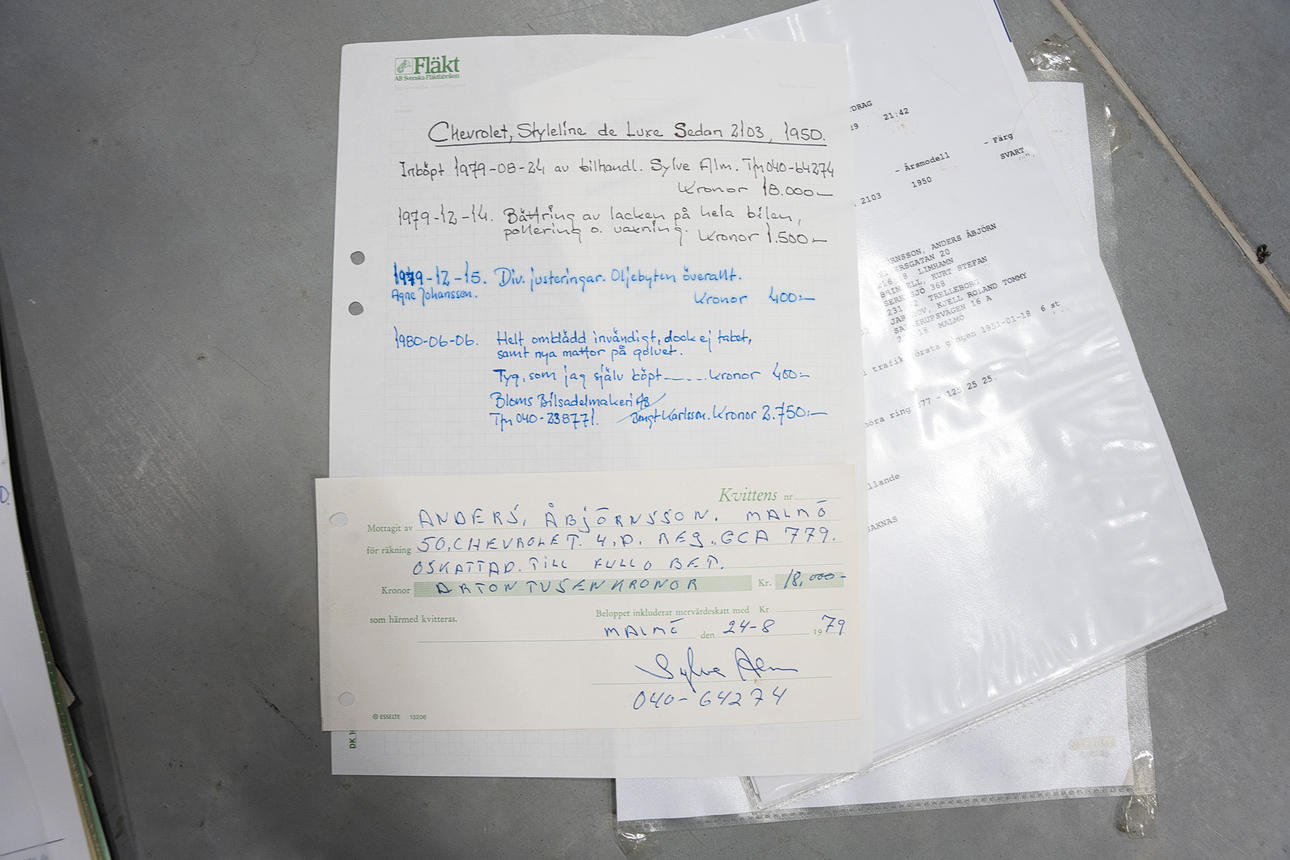 Fläkt
AB Svenska Fläktfabriken
Chevrolet, Styleline de Luxe Sedan 2103, 1950.
Inköpt 1979-08-24 av bilhandl. Sylve Alm. Tfn 040-64274
Kronor 18.000:-
1979-12-14. Bättring av lacken på hela bilen,
polering o. vaxning. Kronor 1.500:-
1979-12-15. Div. justeringar. Oljebyten överallt.
Agne Johansson. Kronor 400:-
1980-06-06. Helt omklädd invändigt, dock ej taket,
samt nya mattor på golvet.
Tyg, som jag själv köpt----- Kronor 400:-
Bloms Bilsadelmakeri AB
Tfn 040-238771. Bengt Karlsson. Kronor 2.750:-
Kvittens nr
Mottagit av ANDERS, ÅBJÖRNSSON. MALMÖ
för räkning 50, CHEVROLET. 4, D. REG. GCA 779.
OSKATTAD. TILL FULLO BET.
Kronor ARTON TUSEN KRONOR Kr. 18,000-
Beloppet inkluderar mervärdeskatt med Kr
som härmed kvitteras.
MALMÖ den 24-8 1979
Sylve Alm
040-64274
© ESSELTE 13206
21:42
- Årsmodell - Färg
2103 1950 SVART
ANDERS ÅBJÖRN
20
LIMHAMN
KURT STEFAN
368
231 TRELLEBORG
KJELL ROLAND TOMMY
16 A
MALMÖ
i trafik första gången 1951-01-18 6 st
ring 77 - 125 25 25.
SAKNAS